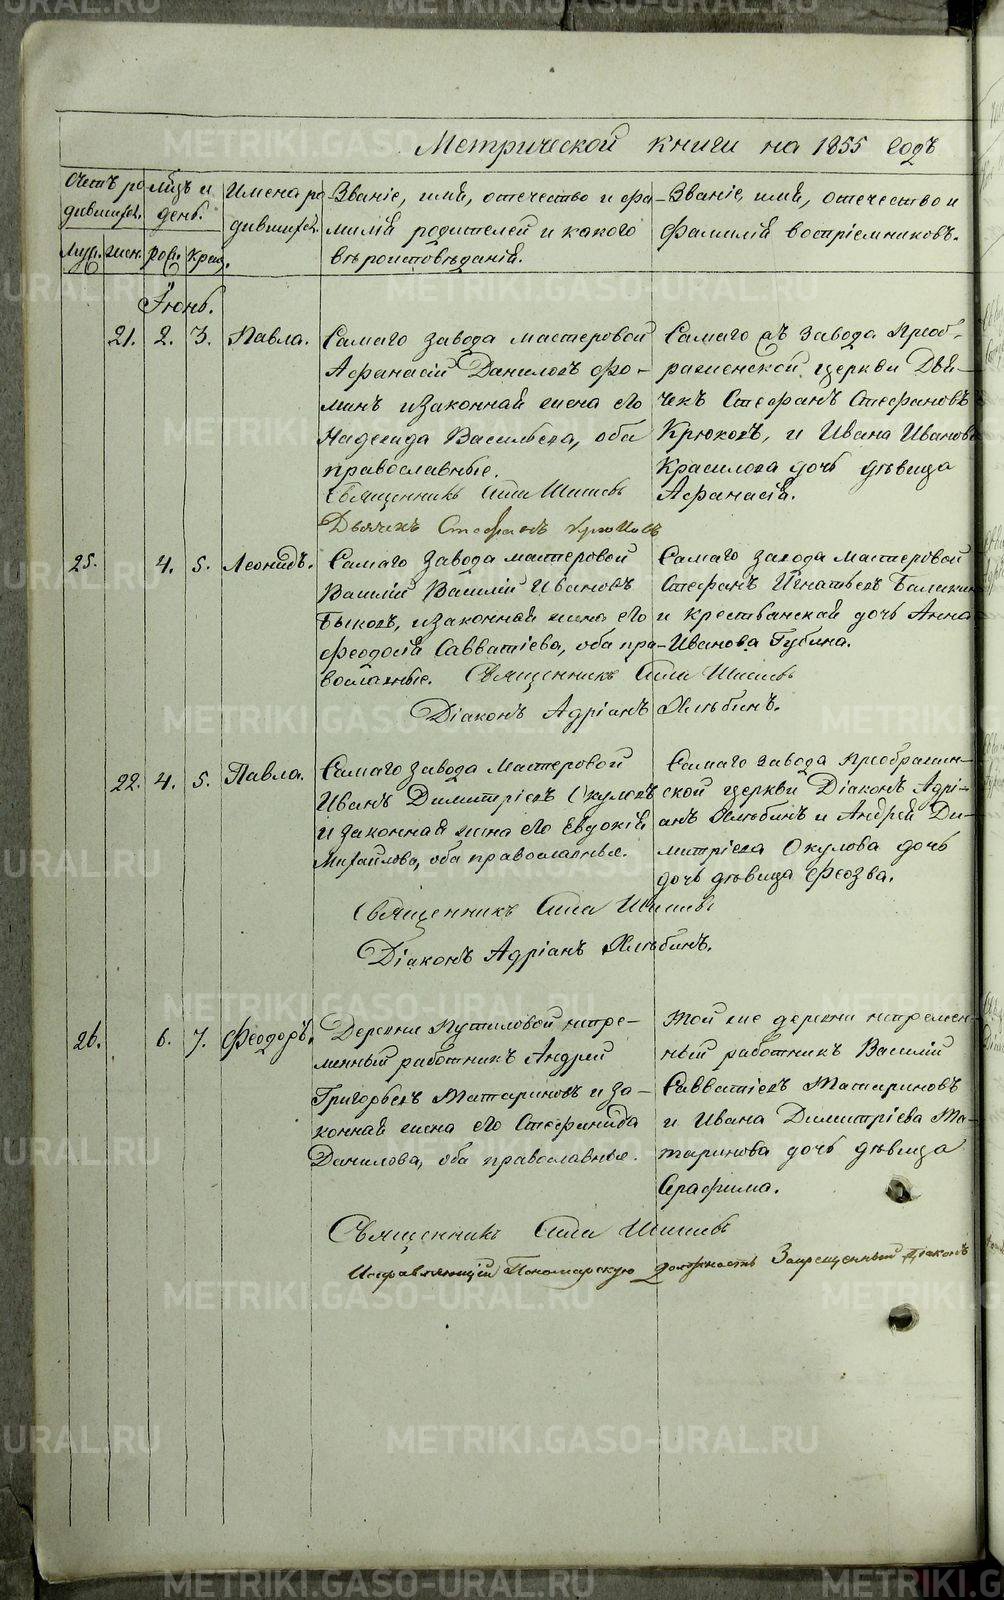 Метрической книги на 1855 годъ
Счетъ ро-
дившихся.
Муж. жен.
мѣц. и
день.
рож. крещ.
Имена ро-
дившихся.
Званіе, имя, отечество и фа-
милія родителей и какого
вѣроисповѣданія.
Званіе, имя, отечество и
фамилія воспріемниковъ.
Іюнь.
21. 2. 3. Павла.
Самаго завода мастеровой
Афанасій Даниловъ Фо-
минъ и законная жена его
Надежда Васильева, оба
православные.
Священникъ Сила Шишевъ
Дьячекъ Стефанъ Крюковъ
Самаго съ завода Преоб-
раженской церкви Дья-
чекъ Стефанъ Стефановъ
Крюковъ, и Ивана Иванова
Красилова дочь дѣвица
Афанасія.
25. 4. 5. Леонидъ.
Самаго завода мастеровой
Василій Василій Ивановъ
Быковъ, и законная жена его
Феодосія Савватіева, оба пра-
вославные. Священникъ Сила Шишевъ
Діаконъ Адріанъ Хлѣбинъ.
Самаго завода мастеровой
Стефанъ Игнатьевъ
и крестьянская дочь Анна
Иванова Губина.
22. 4. 5. Павла.
Самаго завода Мастеровой
Иванъ Димитріевъ Окуловъ
и законная жена его Евдокія
Михайлова, оба православные.
Священникъ Сила Шишевъ
Діаконъ Адріанъ Хлѣбинъ.
Самаго завода Преображен-
ской церкви Діаконъ Адрі-
анъ Хлѣбинъ и Андрей Ди-
митріева Окулова дочь
дочь дѣвица Феозва.
26. 6. 7. Феодоръ.
Деревни Путиловой непре-
менный работникъ Андрей
Григорьевъ Татариновъ и за-
конная жена его Стефанида
Данилова, оба православные.
Священникъ Сила Шишевъ
Исправляющій Пономарскую должность Запрещенный Діаконъ
Той же деревни непремен-
ный работникъ Василій
Савватіевъ Татариновъ
и Ивана Димитріева Та-
таринова дочь дѣвица
Серафима.
METRIKI.GASO-URAL.RU